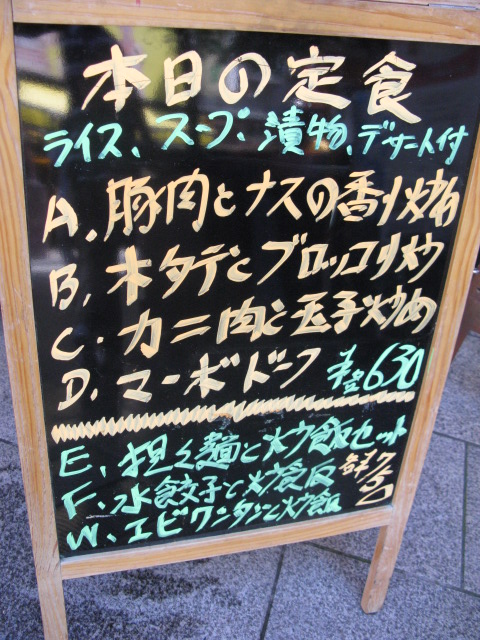 本日の定食
ライス、スープ、漬物、デザート付
A. 豚肉とナスの香り炒め
B. ホタテとブロッコリ炒
C. カニ肉と玉子炒め
D. マーボドーフ ￥630
E. 担々麺と火ウ飯セット
F. 水餃子と火ウ飯
W. エビワンタンと火ウ飯